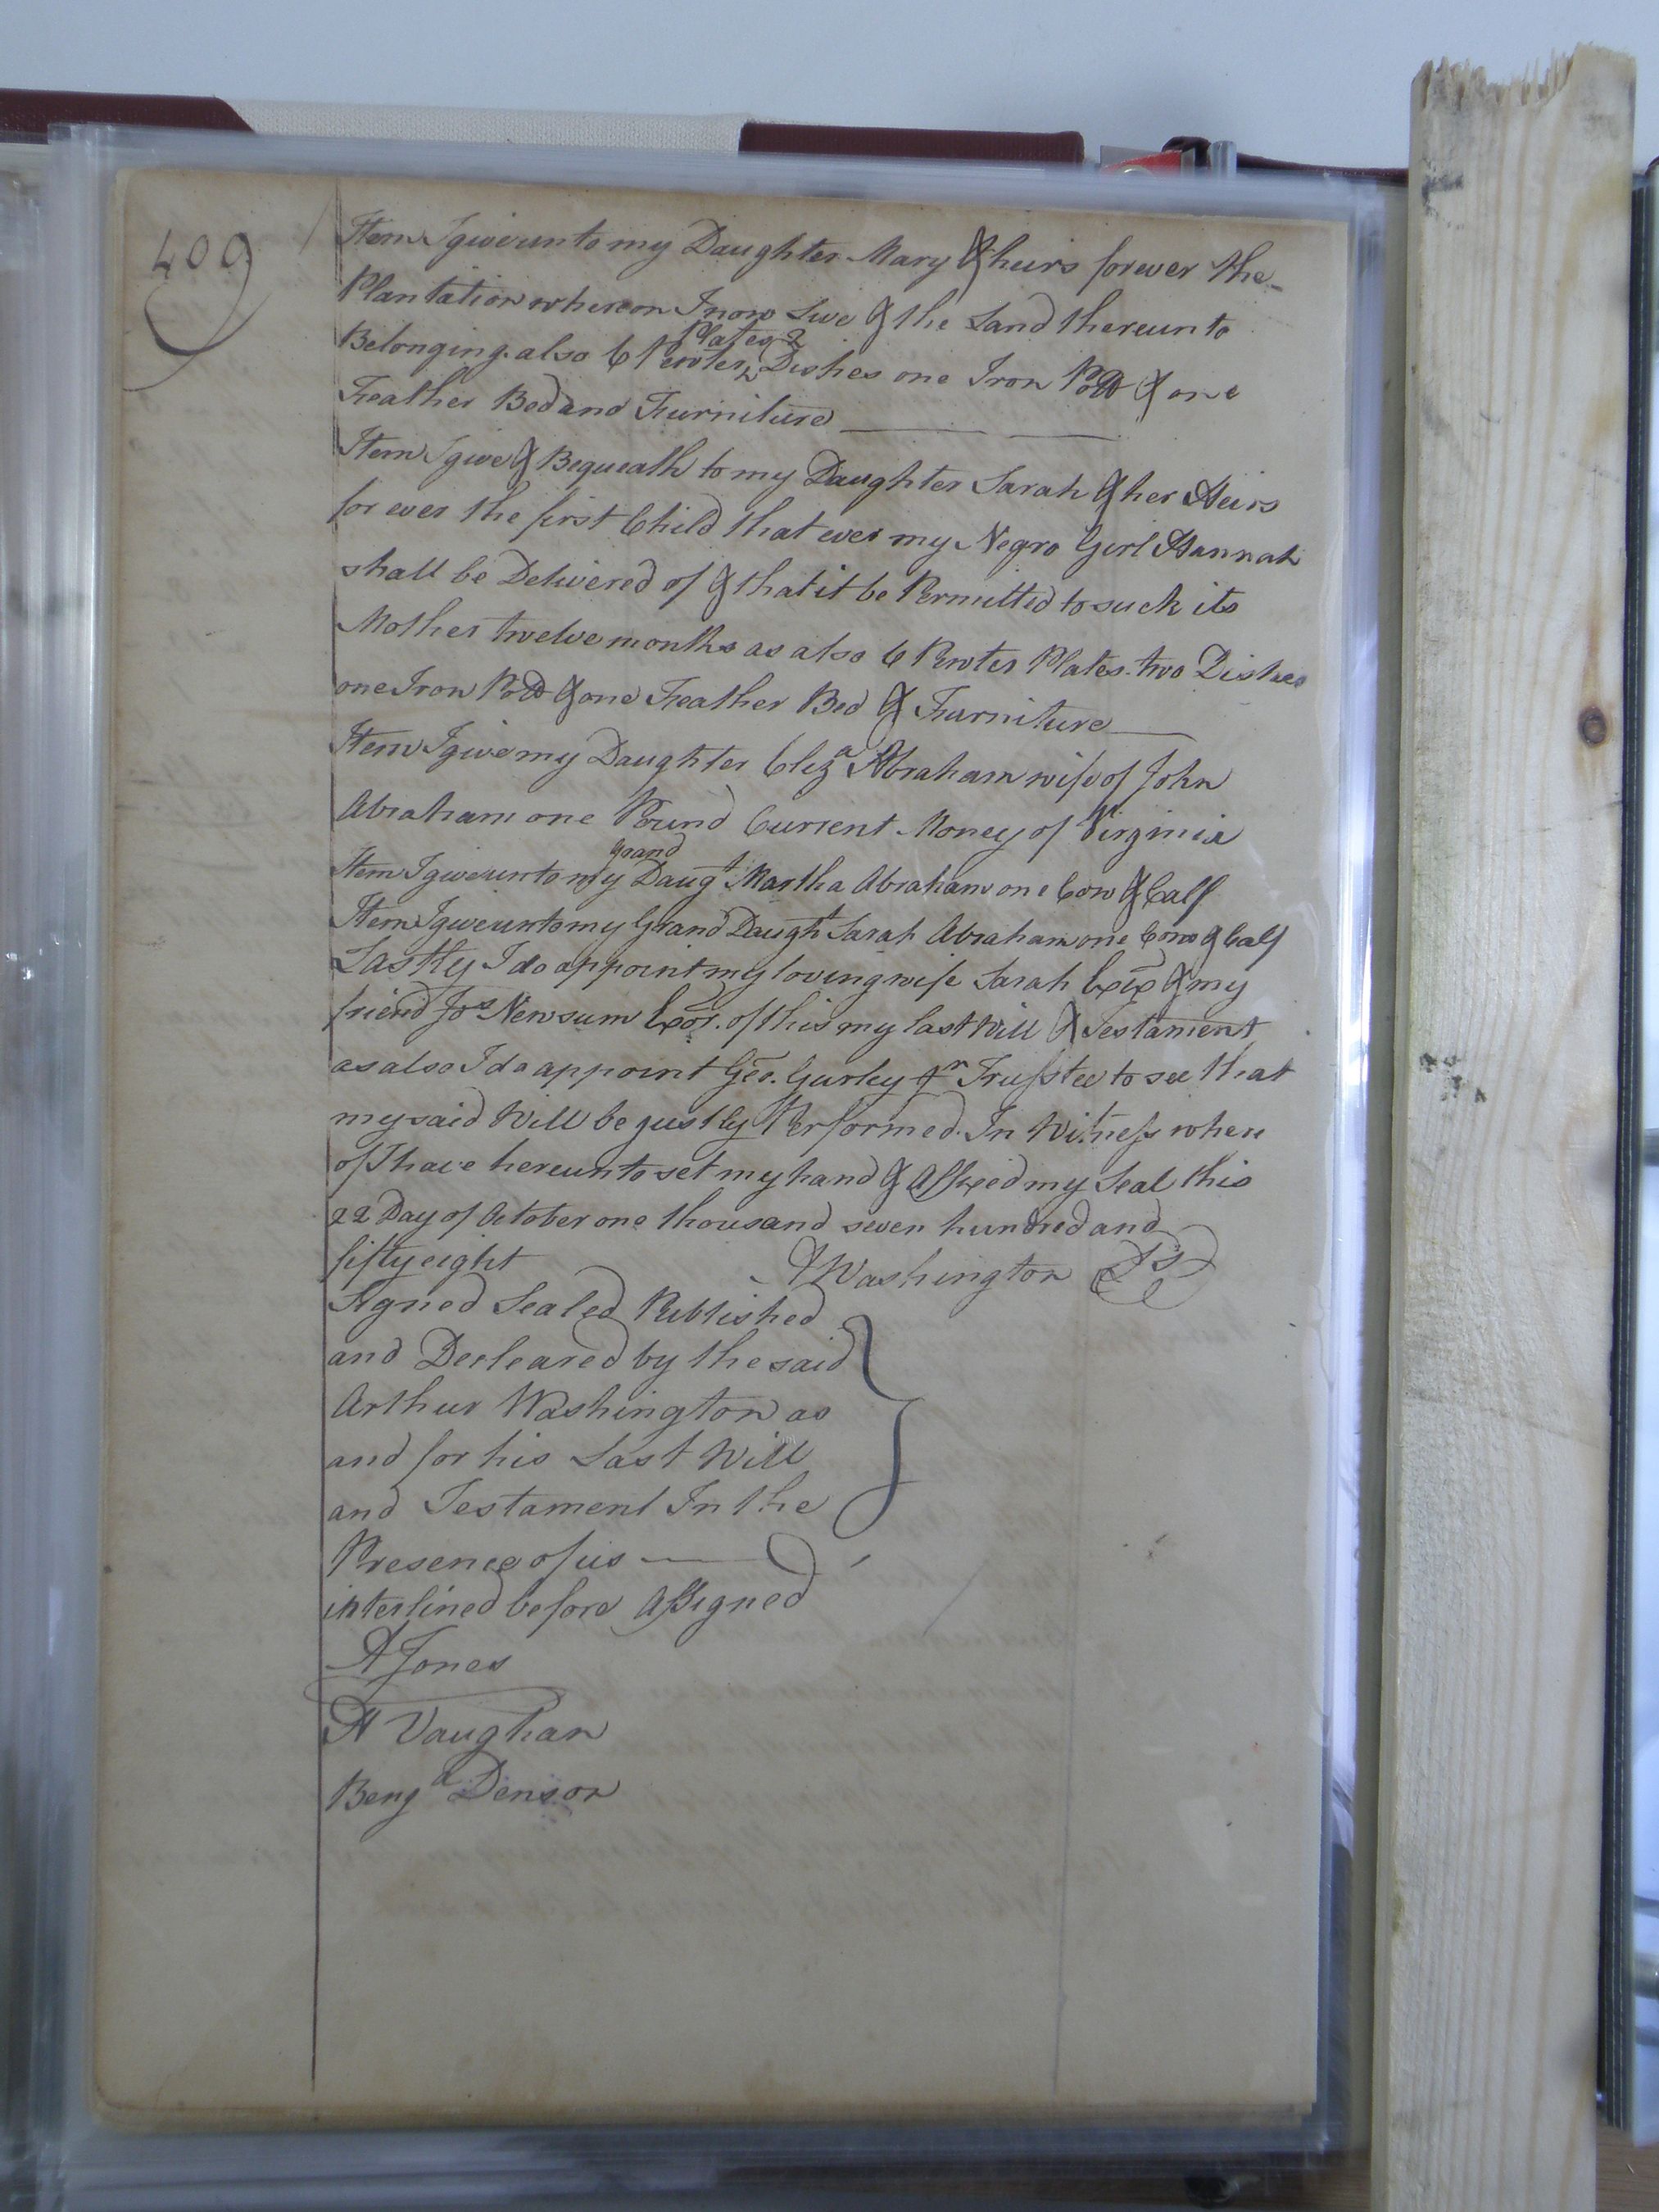 409
Item I give unto my Daughter Mary & heirs forever the
Plantation whereon I now Live & the Land thereunto
Plates 2
Belonging also 6 Pewter Dishes one Iron Pott & one
Feather Bed and Furniture
Item I give & Bequeath to my Daughter Sarah & her Heirs
for ever the first Child that ever my Negro Girl Hannah
shall be Delivered of & that it be Permitted to suck its
Mother twelve months as also 6 Pewter Plates two Dishes
one Iron Pott & one Feather Bed & Furniture
Item I give my Daughter Eliza Abraham wife of John
Abraham one Pound Current Money of Virginia
grand
Item I give unto my Daugt Martha Abraham one Cow & Calf
Item I give unto my Grand Daught Sarah Abraham one Cow & Calf
Lastly I do appoint my loving wife Sarah Exx & my
friend Jos Newsum Exor. of this my last Will & Testament
as also I do appoint Geo. Gurley Jr Trusstee to see that
my said Will be justly Performed. In Witness where
of I have hereunto set my hand & Affixed my Seal this
22 Day of October one thousand seven hundred and
fifty eight A Washington LS
Signed Sealed Published
and Decleared by the said
Arthur Washington as
and for his Last Will
and Testament In the
Presence of us
interlined before Assigned
A Jones
H Vaughan
Benja Denson